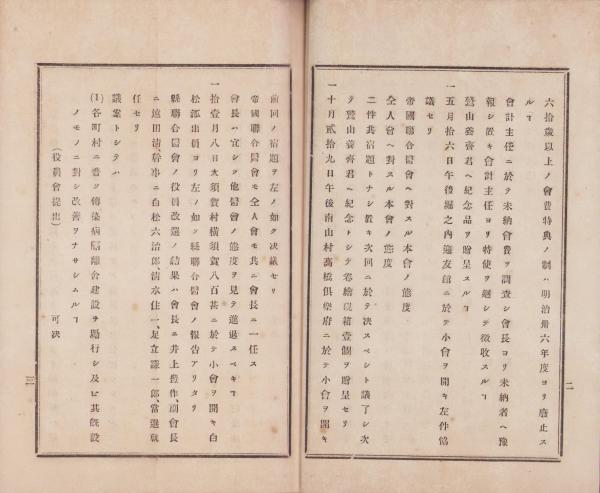 六拾歳以上ノ會費特典ノ制ハ明治卅六年度ヨリ廢止ス
ルヿ
會計主任ニ於テ未納會費ヲ調査シ會長ヨリ未納者ヘ豫
報シ置キ會計主任ヨリ特使ヲ廻シテ徴收スルヿ
鷲山養齋君ヘ紀念品ヲ贈呈スルヿ
一五月拾六日午後堀之内遊友舘ニ於テ小會ヲ開キ左件協
議セリ
帝國聯合醫會ヘ對スル本會ノ態度
仝人會ヘ對スル本會ノ態度
二件共宿題トナシ置キ次回ニ於テ决スベシト議了シ次
テ鷲山養齋君ヘ紀念トシテ卷繪硯箱壹個ヲ贈呈セリ
一十月貳拾九日午後南山村高橋俱樂府ニ於テ小會ヲ開キ
二
前回ノ宿題ヲ左ノ如ク决議セリ
帝國聯合醫會モ仝人會モ共ニ會長ニ一任ス
會長ハ宜シク他醫會ノ態度ヲ見テ進退スベキヿ
一拾壹月八日大須賀村横須賀八百甚ニ於テ小會ヲ開キ白
松部出員ヨリ左ノ如ク縣聯合醫會ノ報告アリタリ
縣聯合醫會ノ役員改選ノ結果ハ會長ニ井上豊作、副會長
ニ遠田淸、幹事ニ白松六治郎、淸水住一、足立謙一郎、當選就
任セリ
議案トシテハ
(1)各町村ニ普ク傳染病隔離舍建設ヲ勵行シ及ビ其旣設
ノモノニ對シ改善ヲナサシムルヿ
(役員會提出) 可决
三